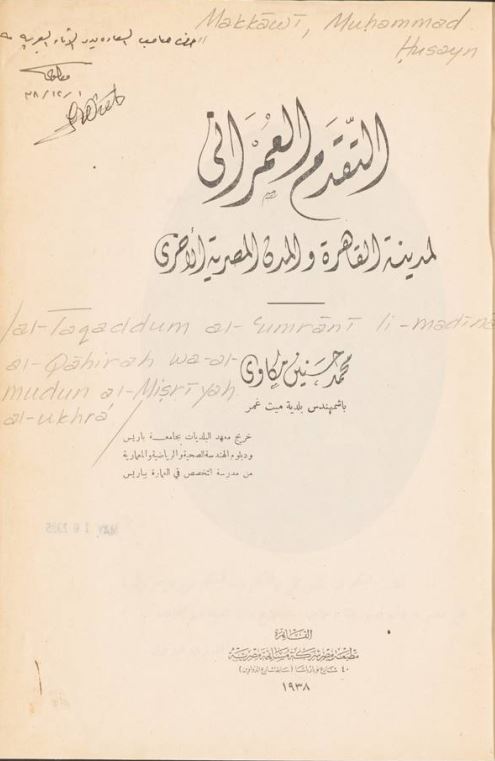 Makkāwī, Muḥammad
Ḥusayn
حضرة صاحب السعادة
٣٨/١٢/١
التقدم العمراني
لمدينة القاهرة والمدن المصرية الأخرى
/al-Taqaddum al-ʻumrānī li-madīnat
al-Qāhirah wa-al-
mudun al-Miṣrīyah
al-ukhrá/
محمد حسنين مكاوى
باشمهندس بلدية ميت غمر
خريج معهد البلديات بجامعة باريس
ودبلوم الهندسة الصحية والرياضية والمعمارية
من مدرسة التخصص في العمارة بباريس
القاهرة
مطبعة مصر شركة مساهمة مصرية
١٩٣٨